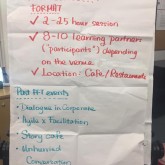 FORMAT
✓ 2-2.5 hour session
✓ 8-10 learning partners
("participants") depending
on the venue
✓ Location: Cafe/Restaurants
Past events
• Dialogue in Corporate
• Agile & Facilitation
• Story cafe
• Unhurried
Conversation